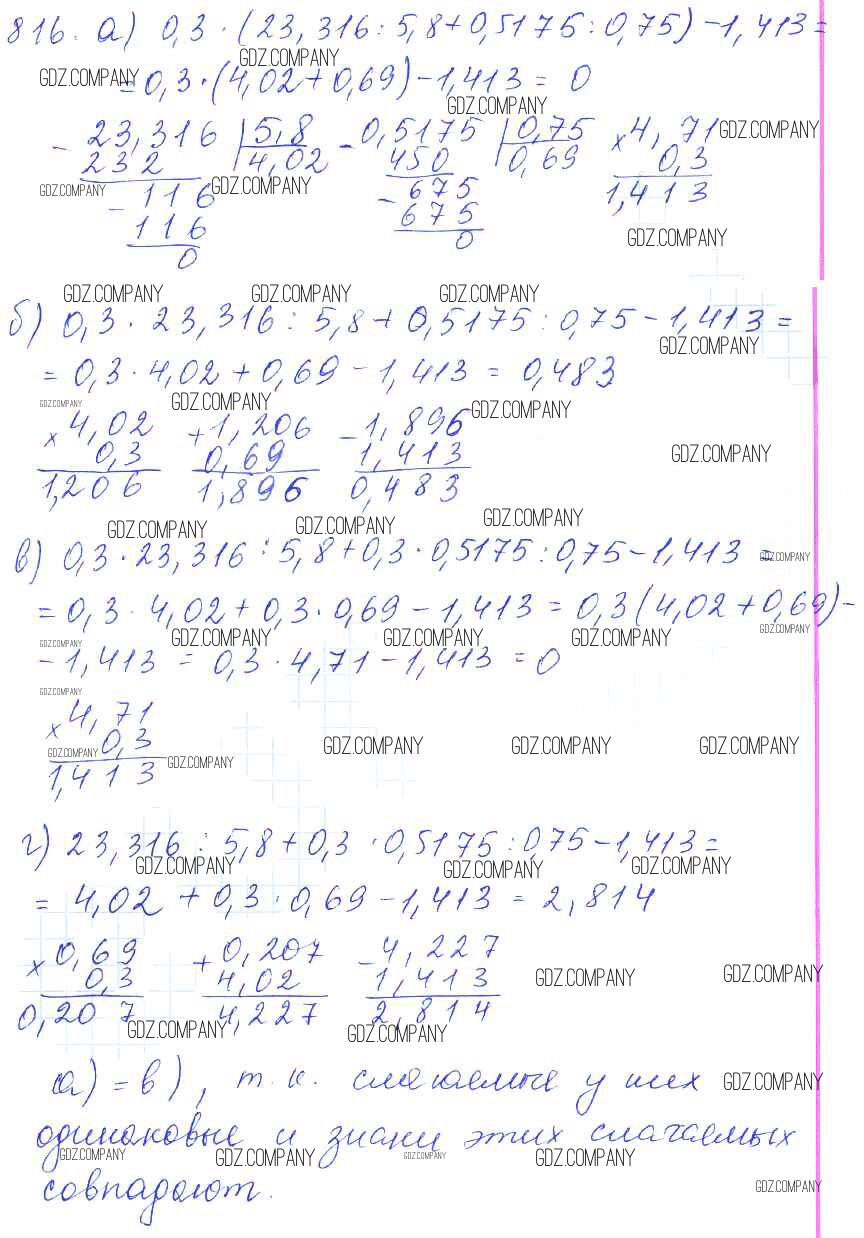 816. а) 0,3 · (23,316 : 5,8 + 0,5175 : 0,75) – 1,413 =
GDZ.COMPANY
GDZ.COMPANY = 0,3 · (4,02 + 0,69) – 1,413 = 0
GDZ.COMPANY
– 23,316 | 5,8 – 0,5175 | 0,75 × 4,71 GDZ.COMPANY
232 4,02 450 0,69 0,3
GDZ.COMPANY – 116 GDZ.COMPANY – 675 1,413
116 675
0 0 GDZ.COMPANY
GDZ.COMPANY GDZ.COMPANY GDZ.COMPANY
б) 0,3 · 23,316 : 5,8 + 0,5175 : 0,75 – 1,413 =
GDZ.COMPANY
= 0,3 · 4,02 + 0,69 – 1,413 = 0,483
GDZ.COMPANY GDZ.COMPANY GDZ.COMPANY
× 4,02 + 1,206 – 1,896
0,3 0,69 1,413 GDZ.COMPANY
1,206 1,896 0,483
GDZ.COMPANY GDZ.COMPANY GDZ.COMPANY
в) 0,3 · 23,316 : 5,8 + 0,3 · 0,5175 : 0,75 – 1,413 = GDZ.COMPANY
= 0,3 · 4,02 + 0,3 · 0,69 – 1,413 = 0,3 (4,02 + 0,69) –
GDZ.COMPANY GDZ.COMPANY GDZ.COMPANY GDZ.COMPANY GDZ.COMPANY
– 1,413 = 0,3 · 4,71 – 1,413 = 0
GDZ.COMPANY
× 4,71
GDZ.COMPANY 0,3 GDZ.COMPANY GDZ.COMPANY GDZ.COMPANY
1,413 GDZ.COMPANY
г) 23,316 : 5,8 + 0,3 · 0,5175 : 0,75 – 1,413 =
GDZ.COMPANY GDZ.COMPANY GDZ.COMPANY
= 4,02 + 0,3 · 0,69 – 1,413 = 2,814
× 0,69 + 0,207 – 4,227
0,3 4,02 1,413 GDZ.COMPANY GDZ.COMPANY
0,207 4,227 2,814
GDZ.COMPANY GDZ.COMPANY
а) = в), т. к. слагаемые у них GDZ.COMPANY
одинаковые и знаки этих слагаемых
GDZ.COMPANY GDZ.COMPANY GDZ.COMPANY GDZ.COMPANY
совпадают.
GDZ.COMPANY